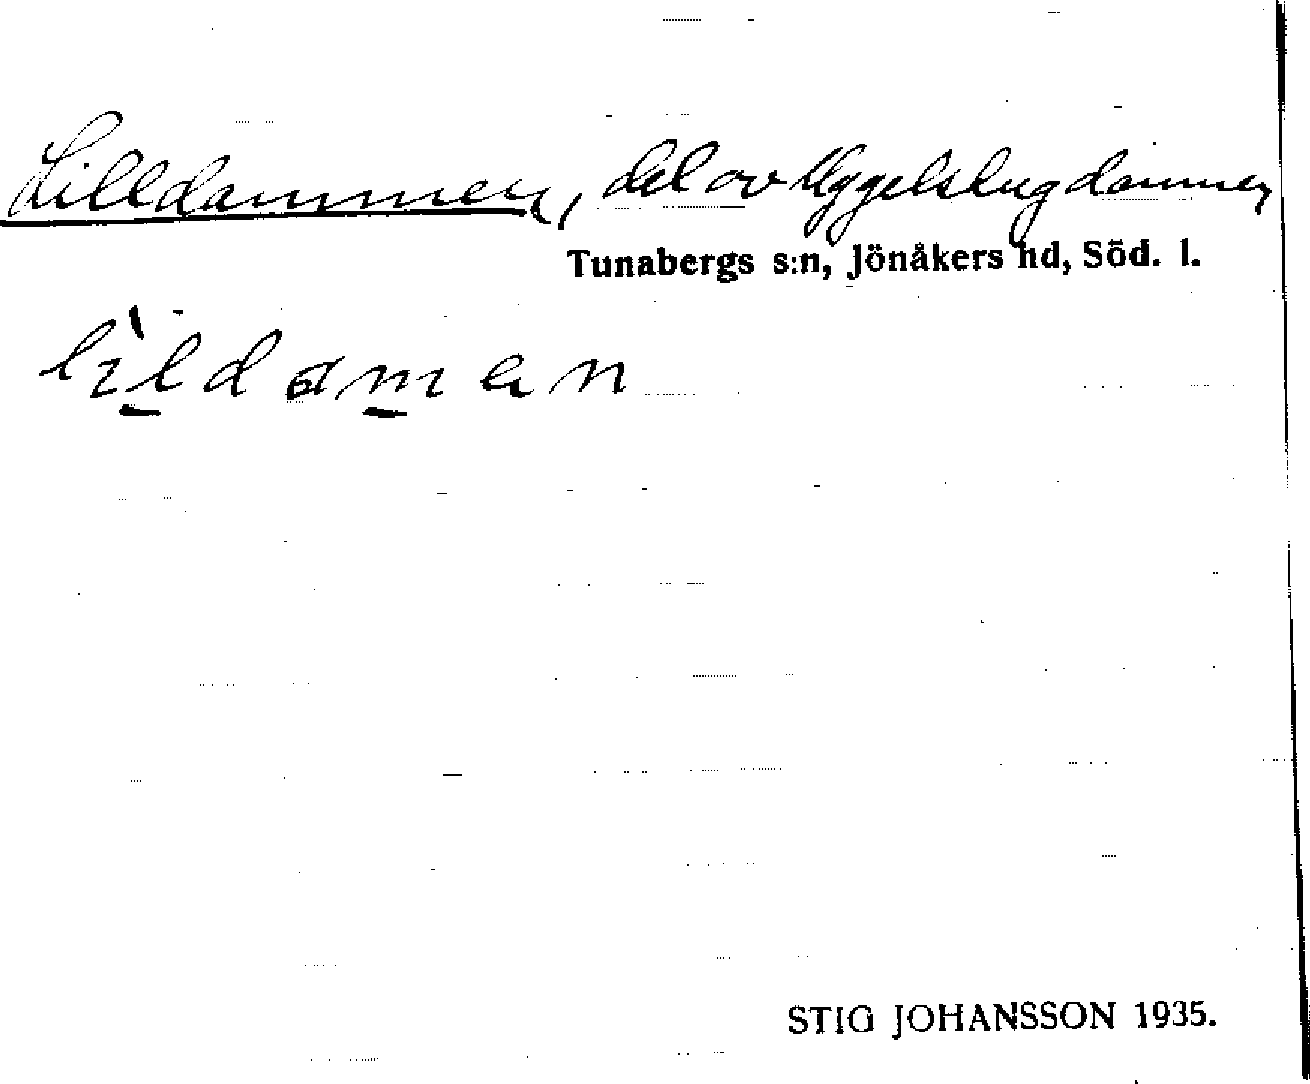 Lilldammen, del av Uggelskugdammen
Tunabergs s:n, Jönåkers hd, Söd. l.
lìldaman
STIG JOHANSSON 1935.